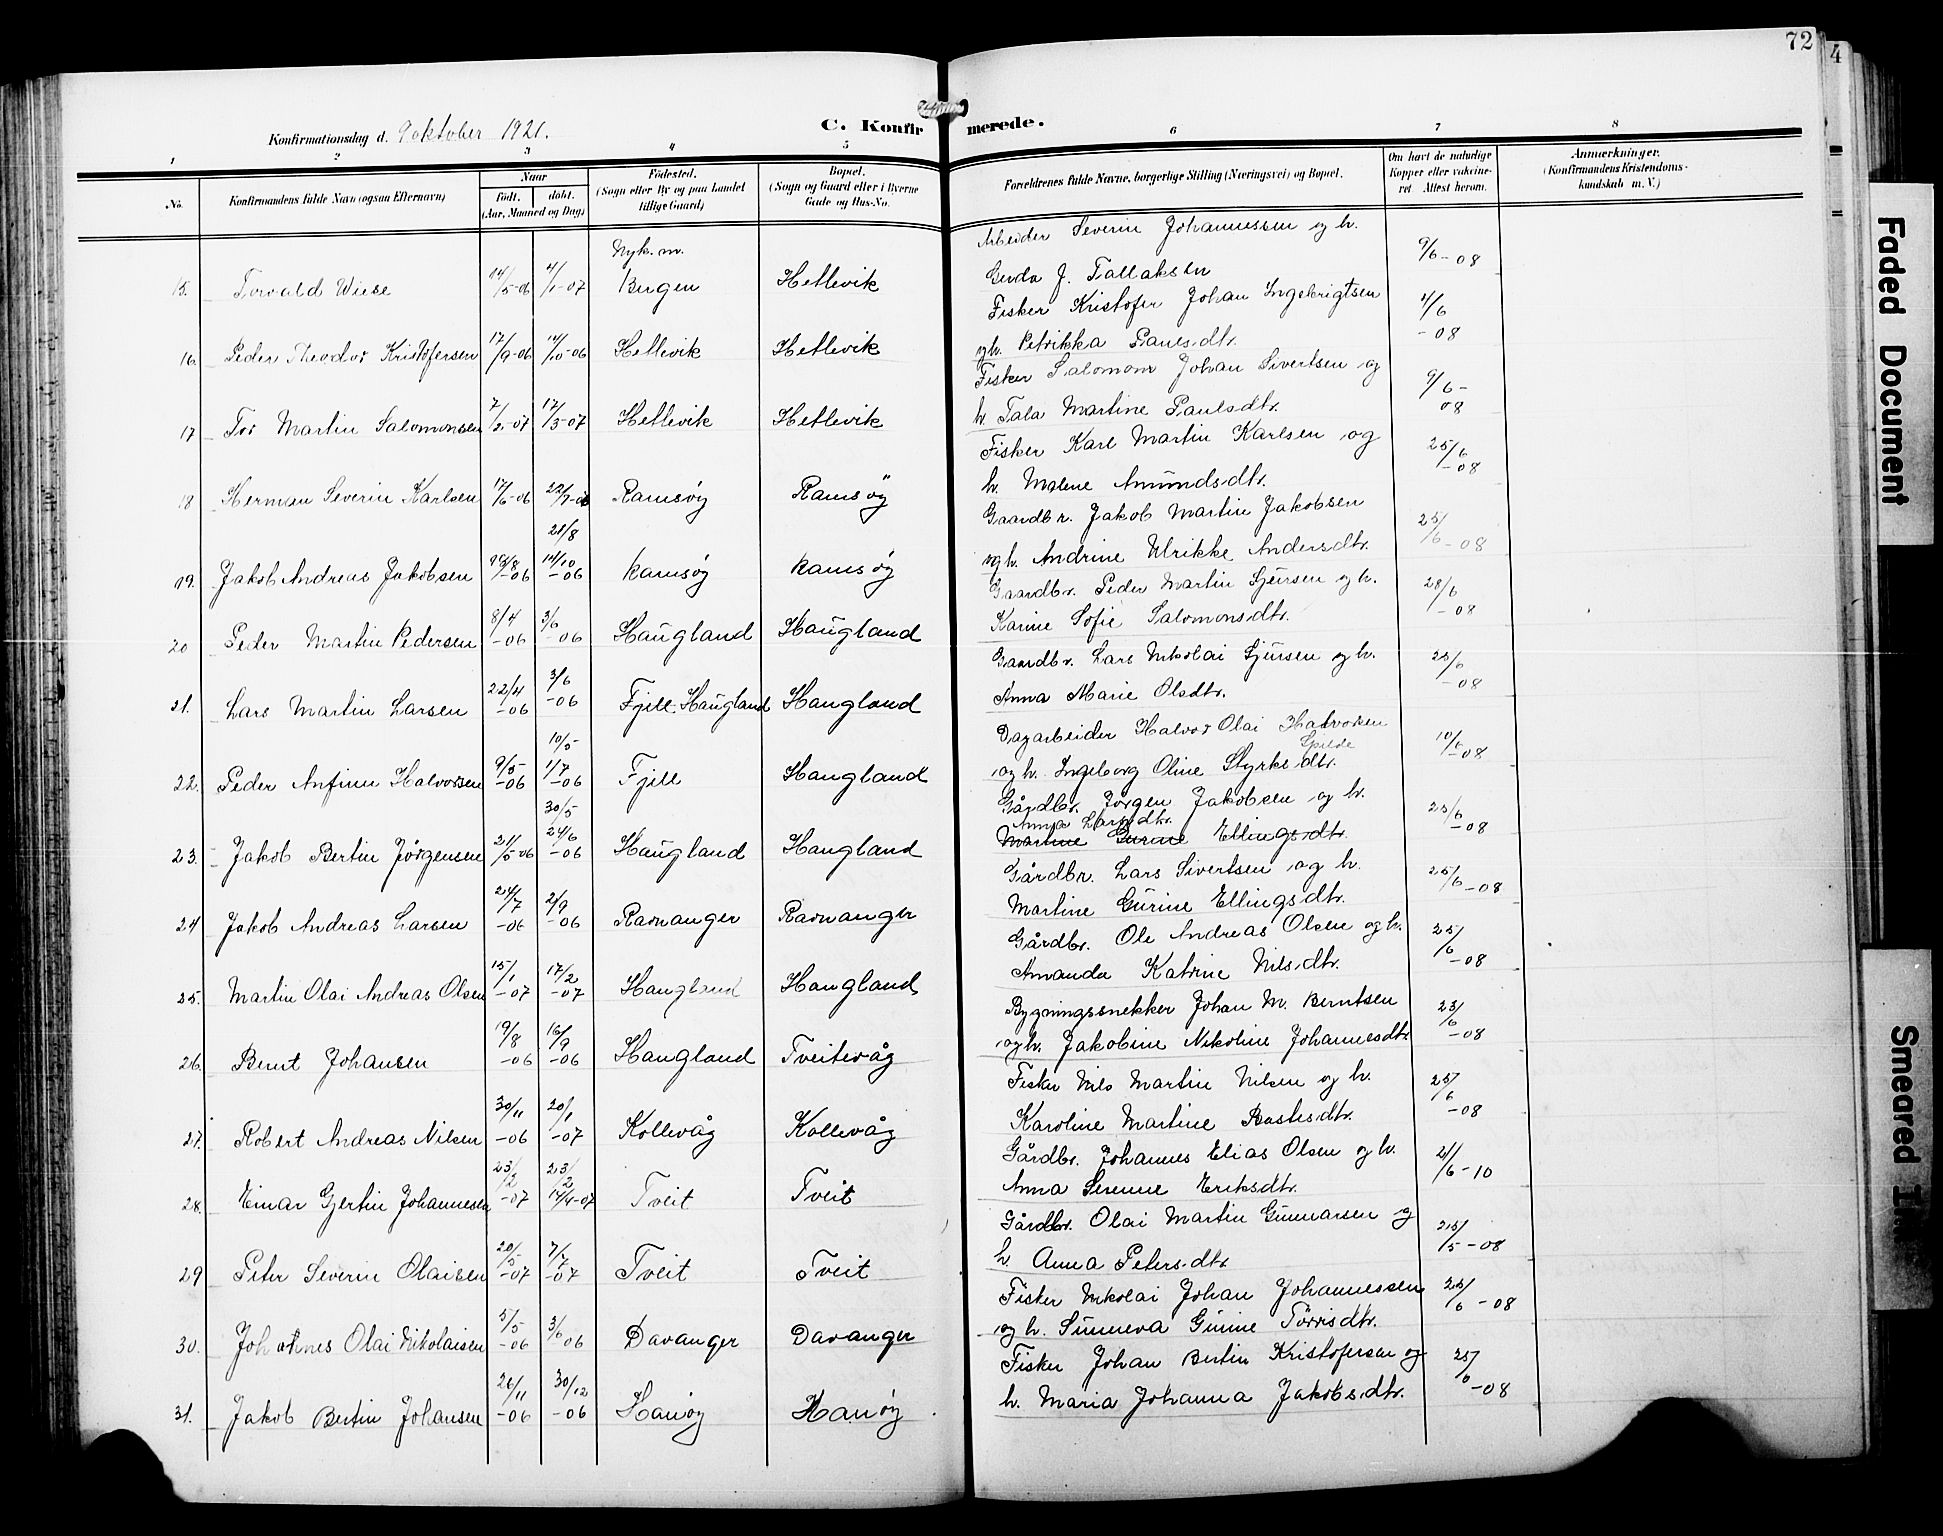 72
4
C. Konfirmerede.
Konfirmationsdag d. 9 oktober 1921.
1 2 3 4 5 6 7 8
No.
Konfirmandens fulde Navn (ogsaa Efternavn)
Naar
födt. döbt.
(Aar, Maaned og Dag)
Födested.
(Sogn eller By og paa Landet
tillige Gaard)
Bopæl.
(Sogn og Gaard eller i Byerne
Gade og Hus-No.
Forældrenes fulde Navne, borgerlige Stilling (Næringsvei) og Bopæl.
Om havt de naturlige
Kopper eller vaksine-
ret Attest herom.
Anmærkninger.
(Konfirmandens Kristendoms-
kundskab m. V.)
Nyk. m. Arbeider Severin Johannessen og h.
15. Torvald Wiese 14/5-06 4/1-07 Bergen Hetlevik Gerda J. Tallaksen 9/6-08
Fisker Kristofer Johan Ingebrigtsen
16. Peder Theodor Kristofersen 17/9-06 14/10-06 Hetlevik Hetlevik og h. Petrikka Paulsdtr. 4/6-08
Fisker Salomon Johan Sivertsen og
17 Tor Martin Salomonsen 7/2-07 17/3-07 Hetlevik Hetlevik h. Tala Martine Paulsdtr. 9/6-08
Fisker Karl Martin Karlsen og
18 Herman Severin Karlsen 17/6-06 22/7-06 Ramsöy Ramsöy h. Malene Amundsdtr. 25/6-08
21/8 Gaardbr. Jakob Martin Jakobsen
19. Jakob Andreas Jakobsen 14/10-06 Ramsöy Ramsöy og h. Andrine Ulrikke Andersdtr. 25/6-08
Gaardbr. Peder Martin Sjursen og h.
20 Peder Martin Pedersen 8/4-06 3/6-06 Haugland Haugland Karine Sofie Salomonsdtr. 28/6-08
Gaardbr. Lars Nikolai Sjursen og h.
21. Lars Martin Larsen 22/4-06 3/6-06 Fjell. Haugland Haugland Anna Marie Olsdtr. 25/6-08
10/5 Dagarbeider Halvor Olai Halvorsen
22. Peder Anfinn Halvorsen 9/5-06 1/7-06 Fjell Haugland og h. Ingeborg Oline Styrksdtr. 10/6-08
30/5 Gårdbr. Jörgen Jakobsen og h.
Anna Larsdtr.
23. Jakob Bertin Jörgensen 21/5-06 24/6-06 Haugland Haugland Martine Gurine Ellingsdtr. 25/6-08
Gårdbr. Lars Sivertsen og h.
24 Jakob Andreas Larsen 24/7-06 2/9-06 Ravnanger Ravnanger Martine Gurine Ellingsdtr. 25/6-08
Gårdbr. Ole Andreas Olsen og h.
25. Martin Olai Andreas Olsen 15/1-07 17/2-07 Haugland Haugland Amanda Katrine Nilsdtr. 25/6-08
Bygningssnekker Johan M. Berntsen
26. Bernt Johansen 19/8-06 16/9-06 Haugland Tveitevåg og h. Jakobine Nikoline Johannesdtr. 23/6-08
Fisker Nils Martin Nilsen og h.
27. Robert Andreas Nilsen 30/11-06 20/1-07 Kollevåg Kollevåg Karoline Martine Bastesdtr. 25/6-08
23/2 Gårdbr. Johannes Elias Olsen og h.
28. Einar Gjertin Johannesen 23/2-07 14/4-07 Tveit Tveit Anna Serine Eriksdtr. 21/6-10
Gårdbr. Olai Martin Gunnarsen og
29 Peter Severin Olaisen 20/5-07 7/7-07 Tveit Tveit h. Anna Petersdtr. 25/5-08
Fisker Nikolai Johan Johannessen
30. Johannes Olai Nikolaisen 5/5-06 3/6 06 Davanger Davanger og h. Sunneva Gurine Törrisdtr. 25/6-08
Fisker Johan Bertin Kristofersen og
31. Jakob Bertin Johansen 26/11-06 30/12-06 Hanöy Hanöy h. Maria Johanna Jakobsdtr. 25/6-08
Faded Document
Smeared